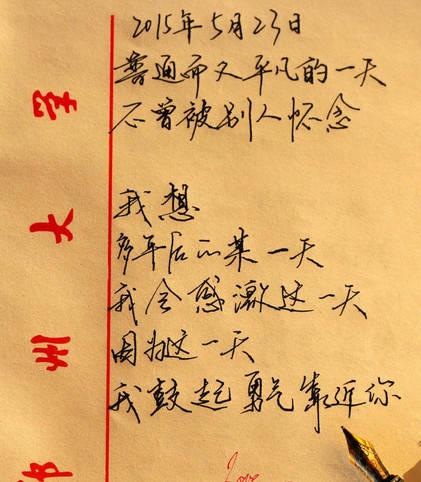 2015年5月23日
普通而又平凡的一天
不曾被别人怀念
我想
多年后的某一天
我会感激这一天
因为这一天
我鼓起勇气靠近你
Love
州大学